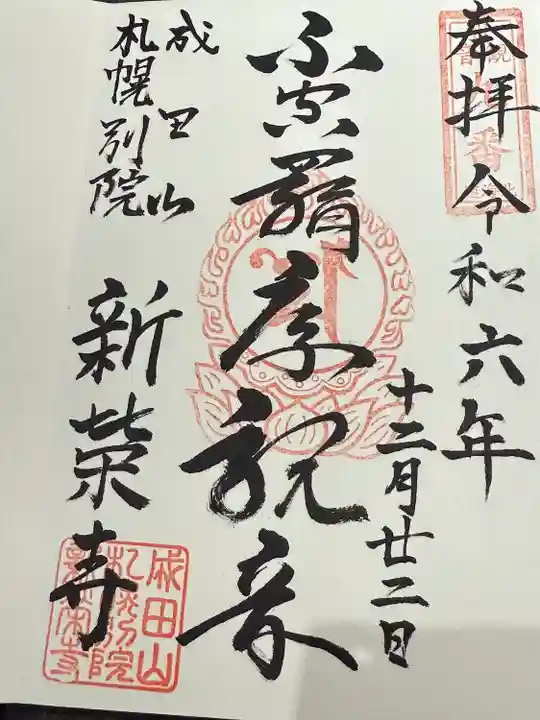 奉拝 令和六年
十二月廿二日
不空羂索観音
成田山
札幌別院
新栄寺
成田山
札幌別院
新栄寺